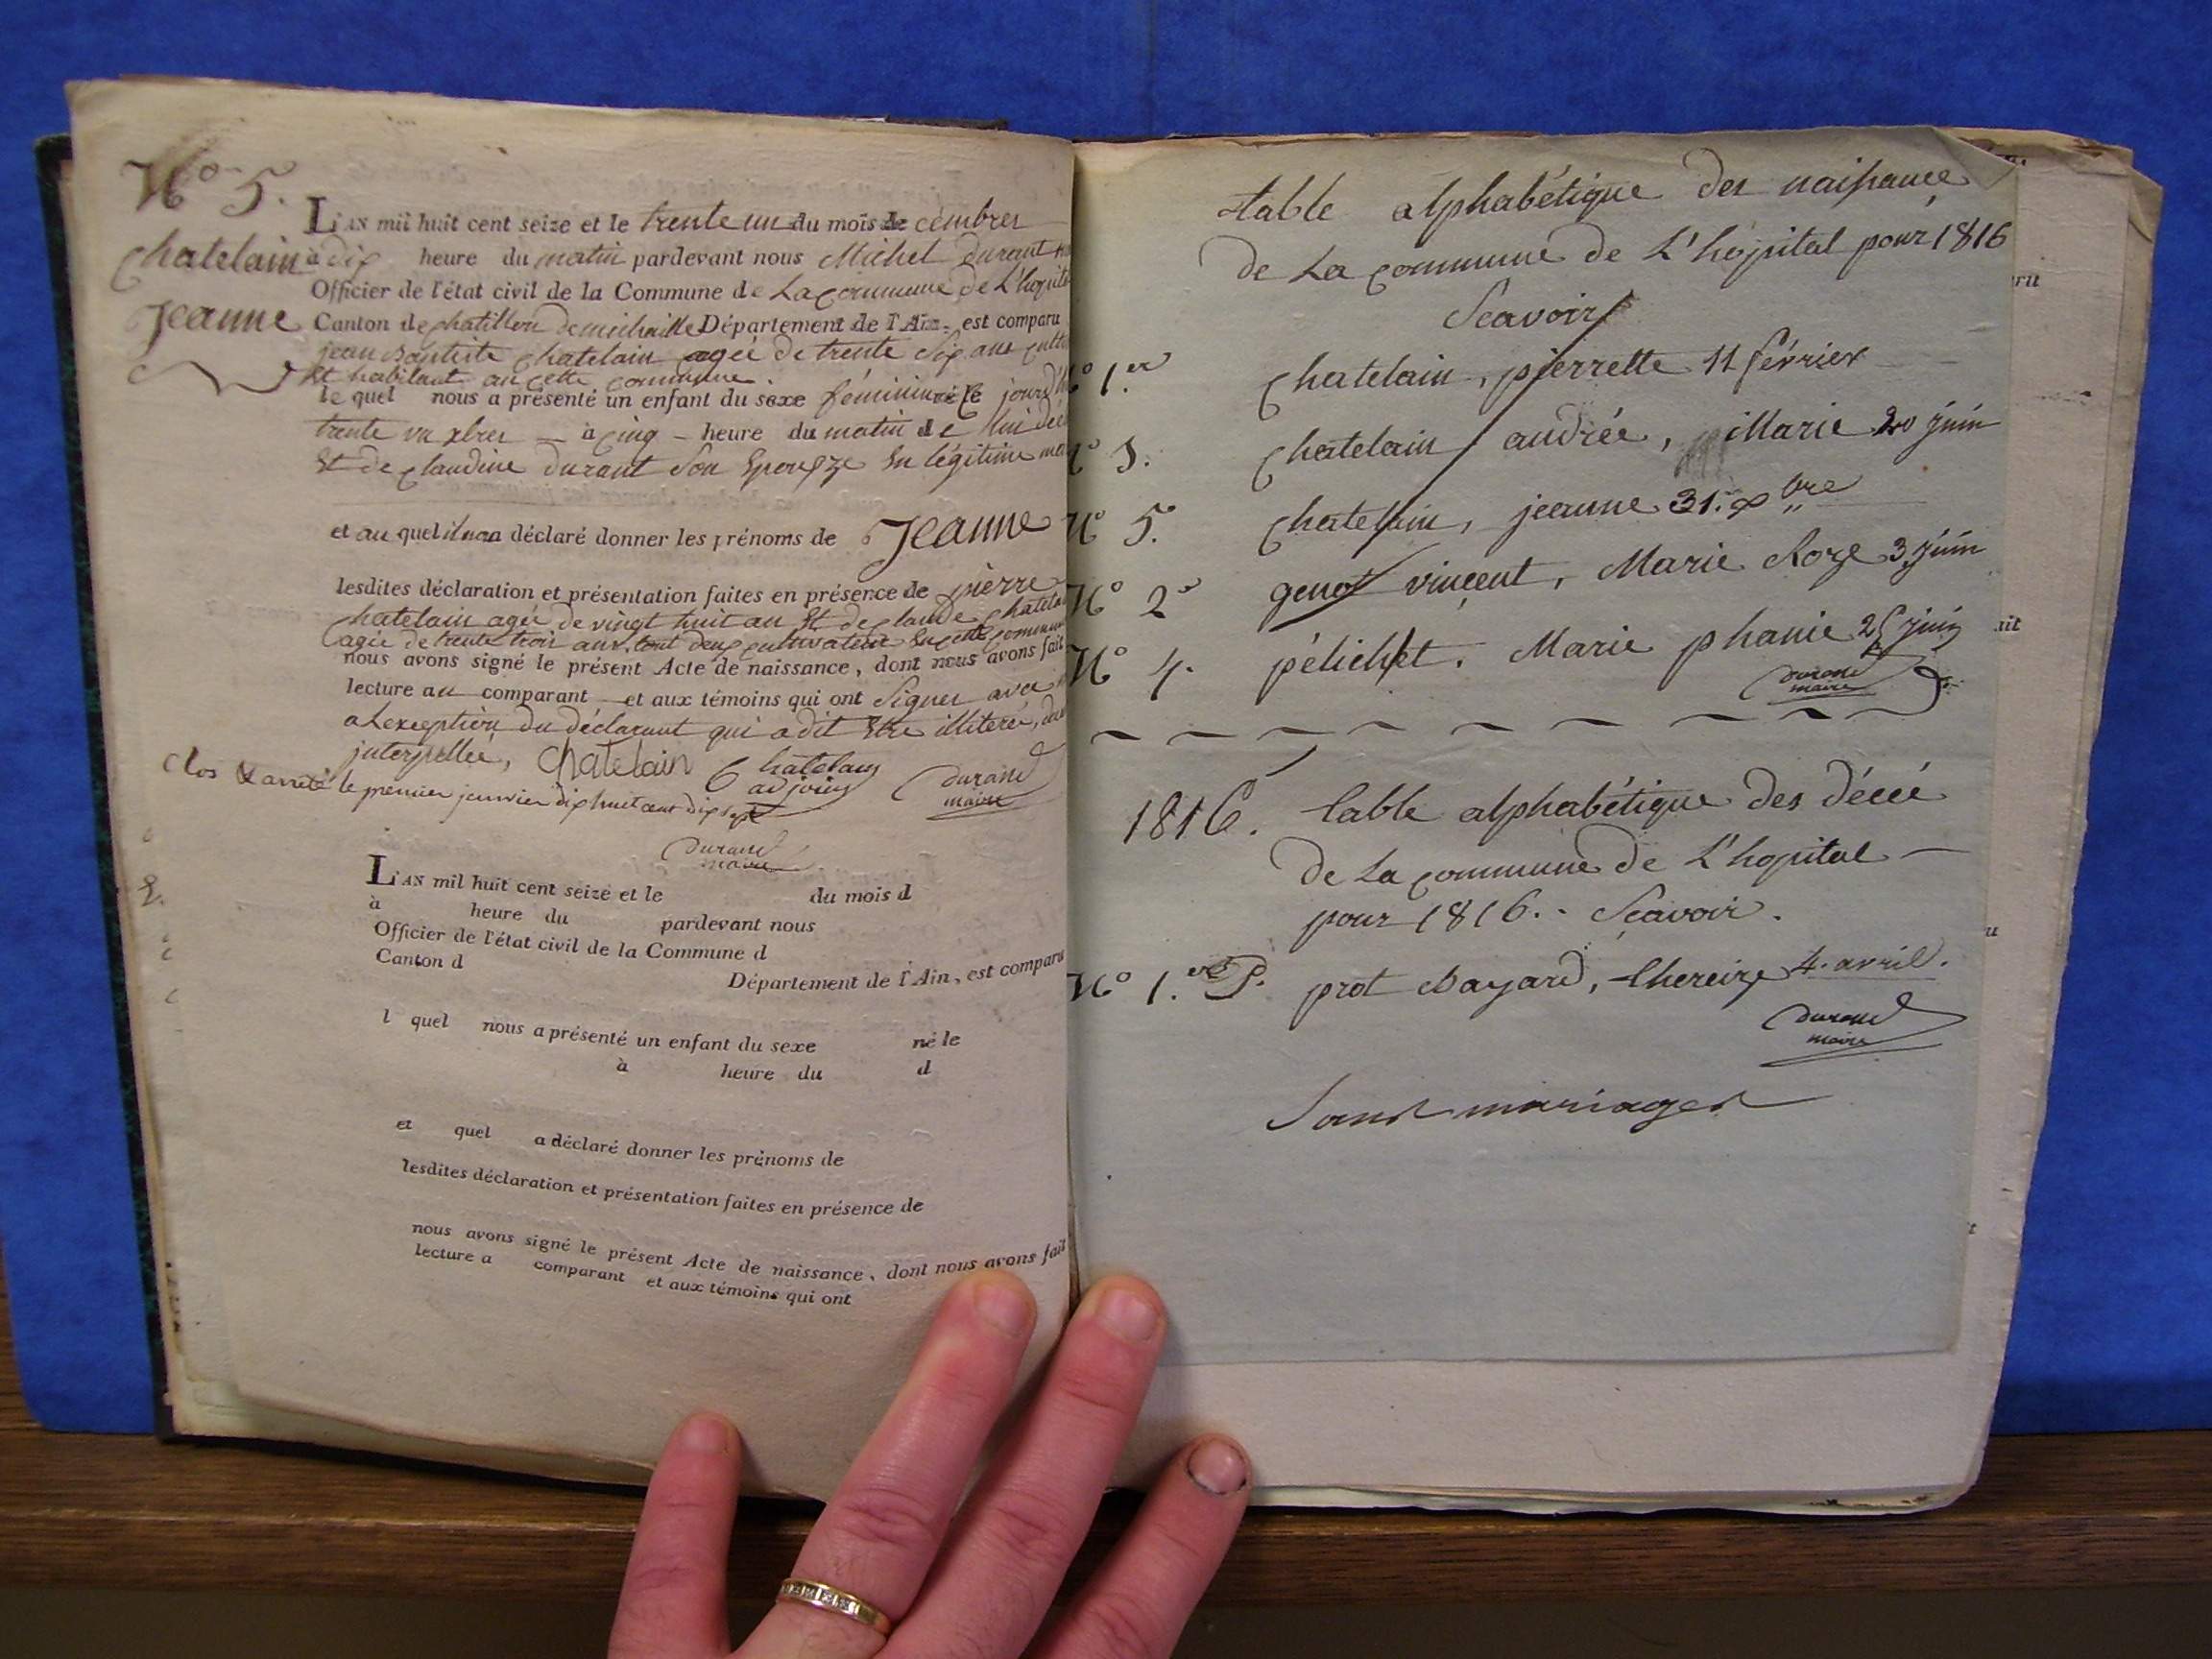 No 5.
Chatelain
Jeanne
L'AN mil huit cent seize et le trente un du mois de cembres
à dix heure du matin pardevant nous Michel Durant
Officier de l'état civil de la Commune de La commune de L'hopital
Canton de chatillon de michaille Département de l'Ain, est comparu
jean Baptiste chatelain agée de trente six ans
et habitant au cette commune
le quel nous a présenté un enfant du sexe féminin né le
trente un xbres - à cinq - heure du matin de lui
Et de claudine durant Son Epousze En légitime
et au quel il nous a déclaré donner les prénoms de Jeanne
lesdites déclaration et présentation faites en présence de pierre
chatelain agée de vingt huit an Et de claude chatelain
agée de trente trois ans, tout deux cultivateur En cette commune
nous avons signé le présent Acte de naissance, dont nous avons fait
lecture au comparant et aux témoins qui ont Signer avec
a Lexeption du déclarant qui a dit Etre illiteré, de
interpellée, Chatelain Chatelain adjoint durand maire
Clos & arreté le premier janvier dix huit cent dix sept
durand
maire
L'AN mil huit cent seize et le du mois d
à heure du pardevant nous
Officier de l'état civil de la Commune d
Canton d Département de l'Ain, est comparu
l quel nous a présenté un enfant du sexe né le
à heure du d
et quel a déclaré donner les prénoms de
lesdites déclaration et présentation faites en présence de
nous avons signé le présent Acte de naissance, dont nous avons fait
lecture a comparant et aux témoins qui ont
table alphabétique des naissance
de La commune de L'hopital pour 1816
Scavoir
No 1.er chatelain, pierrette 11 février
No 3. chatelain andrée, Marie 20 juin
No 5. chatelain, jeanne 31. xbre
No 2o genot vincent, Marie Roze 3 juin
No 4. pélichet. Marie phanie 25 juin
durand
maire
1816. table alphabétique des décéé
de La commune de L'hopital
pour 1816. Scavoir.
No 1.er prot Bayard, thereize 4. avril.
durand
maire
Sans mariages